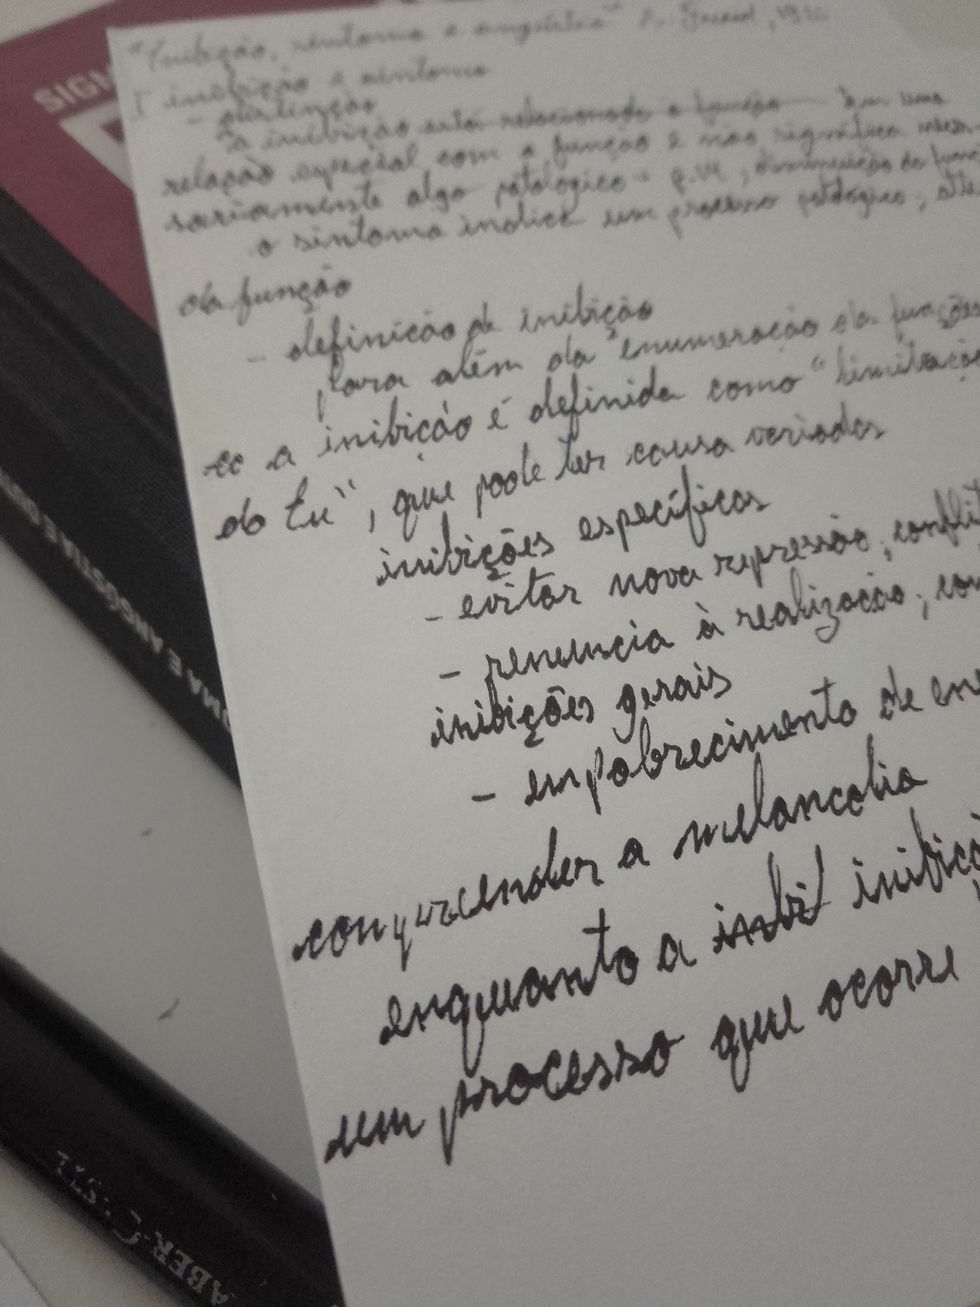 "Inibição, sintoma e angústia" S. Freud, 1926
I inibição e sintoma
- distinção
a inibição está relacionada a função tem uma
relação especial com a função e não significa neces
sariamente algo patológico - p.14, diminuição da
o sintoma indica um processo patológico,
da função
- definição de inibição
para além da "enumeração da funções
a inibição é definida como "limitação
do Eu", que pode ter causa variada
inibições específicas
- evitar nova repressão, conflit
- renuncia à realização,
inibições gerais
- empobrecimento de ene
compreender a melancolia
enquanto a inibi inibiçã
um processo que ocorre
SIGM
OMA E ANGÚSTIA E